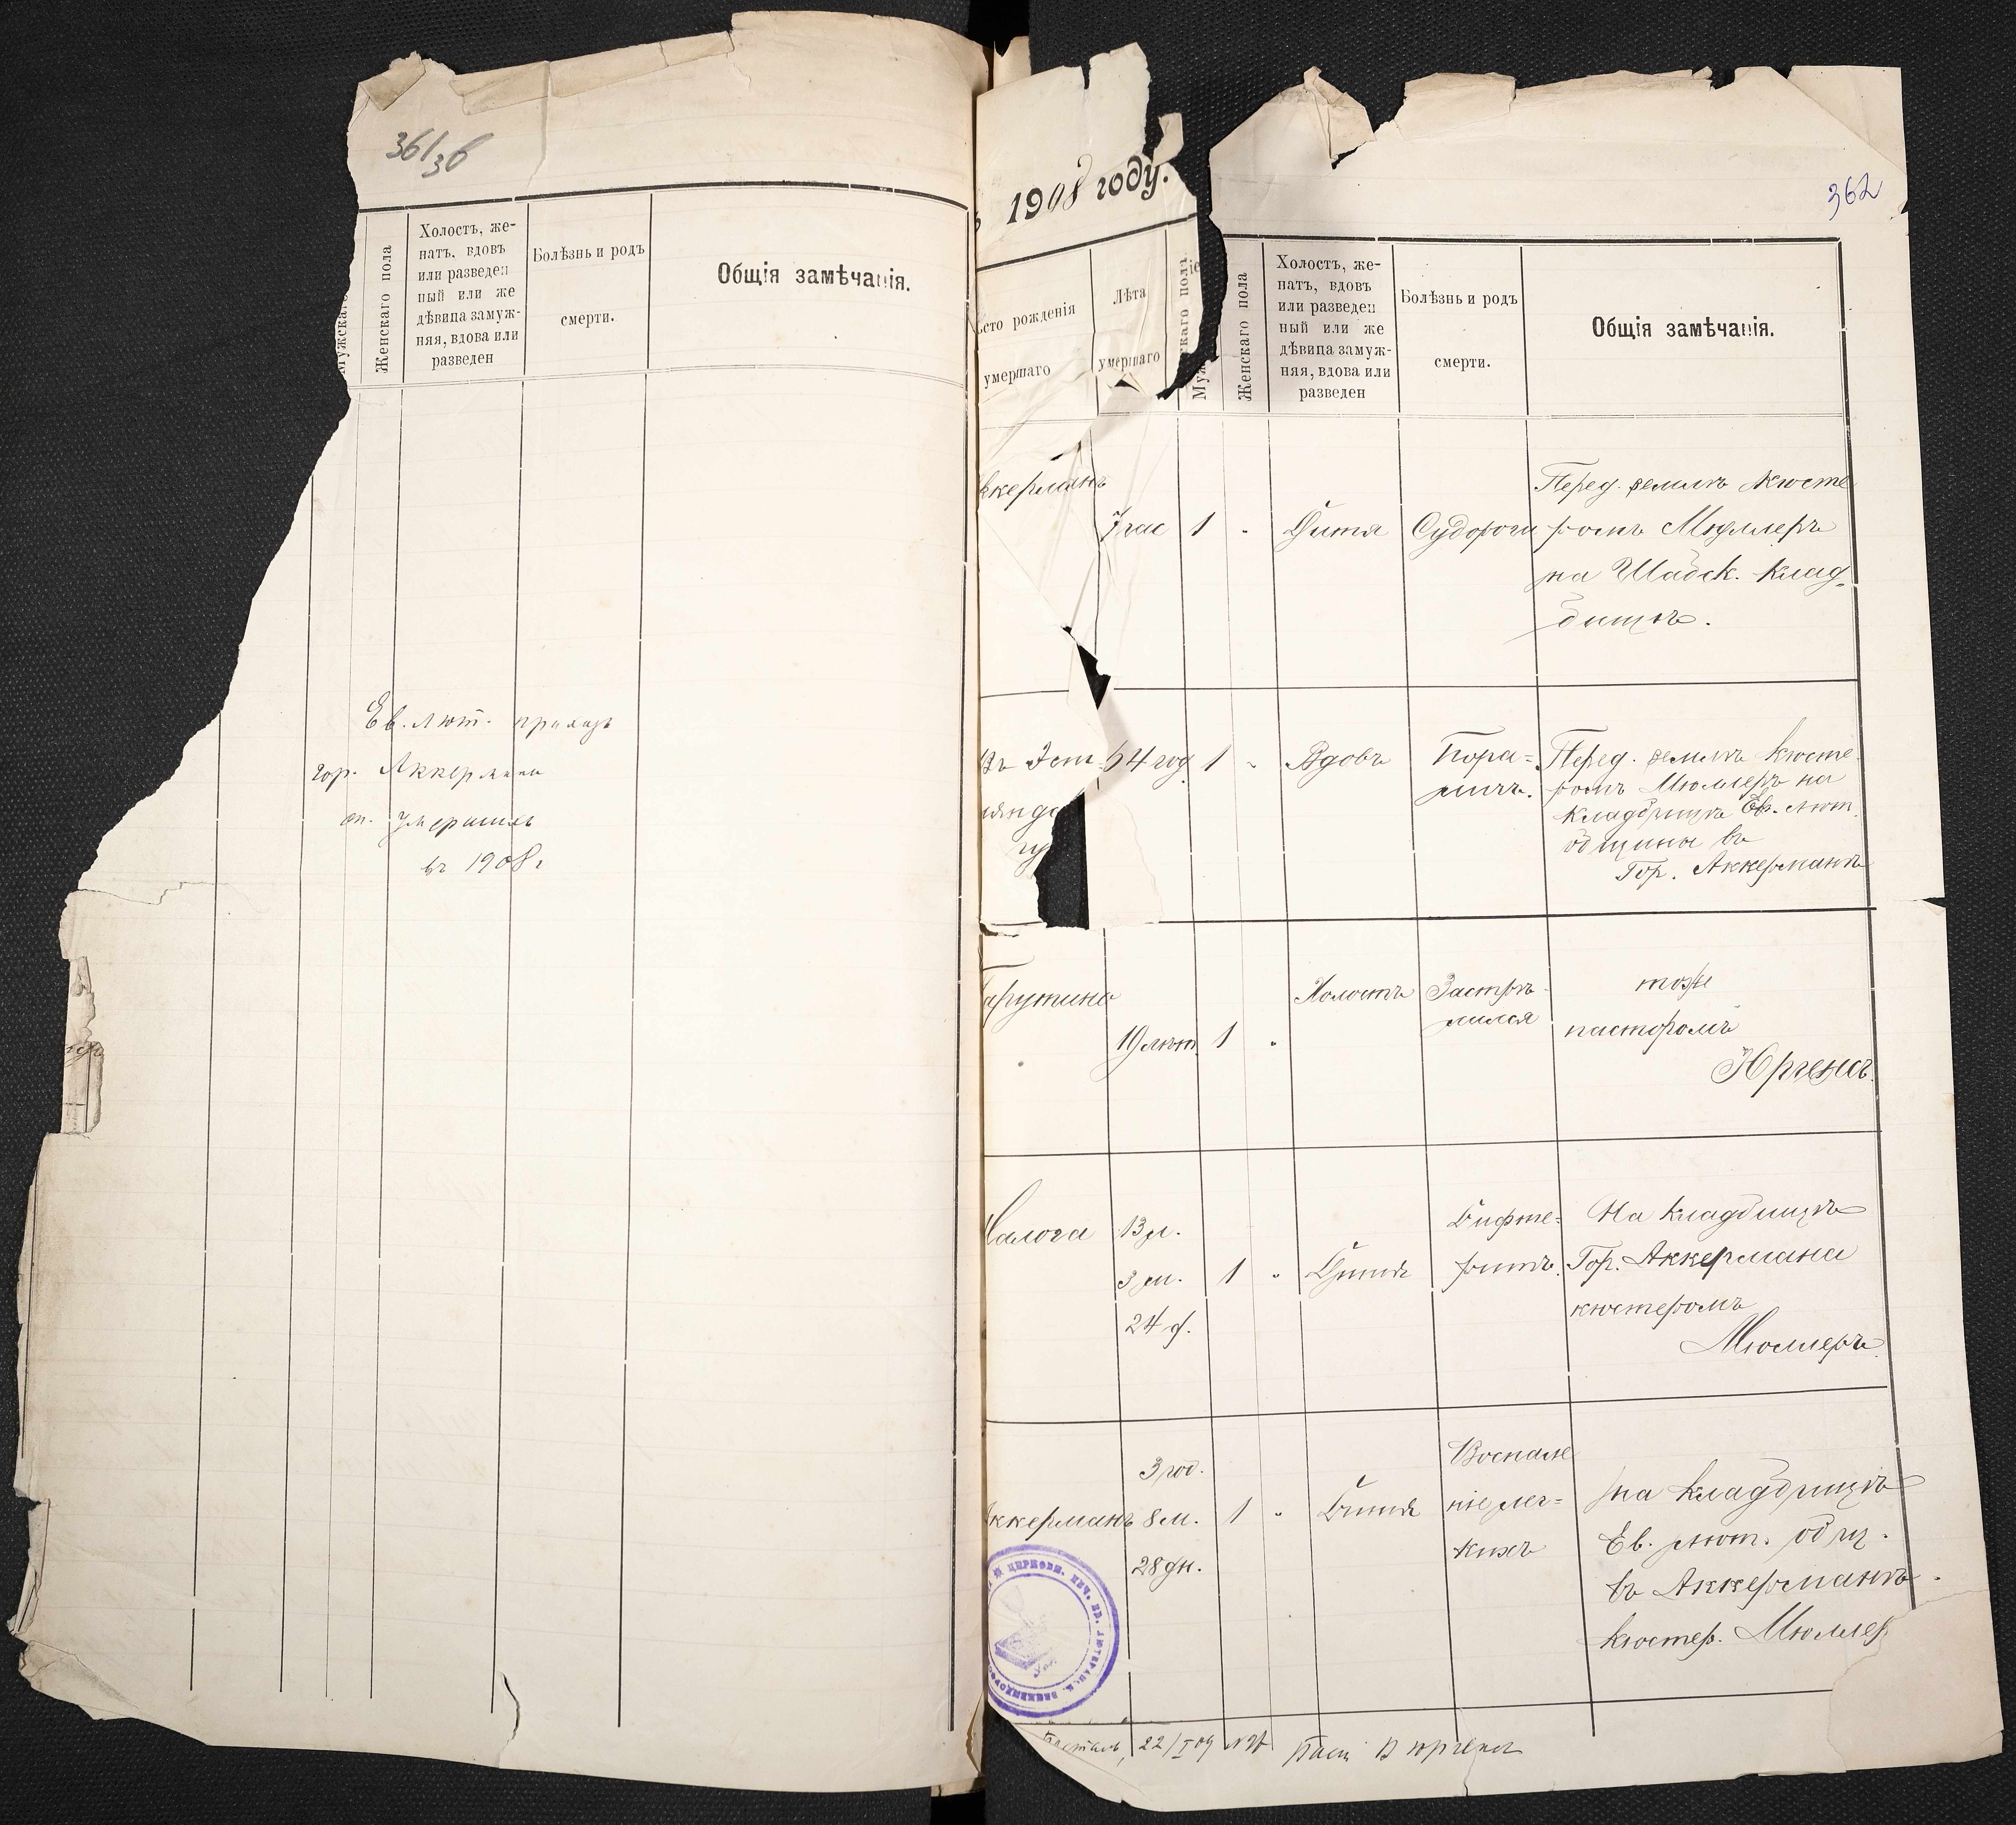 361/36
Мужскаго
Женскаго пола
Холостъ, же-
натъ, вдовъ
или разведен
ный или же
дѣвица замуж-
няя, вдова или
разведен
Болѣзнь и родъ
смерти.
Общія замѣчанія.
Ев. лют. приходъ
гор. Аккермана
умершихъ
въ 1908 г
1908 году.
362
сто рожденія
умершаго
Лѣта
умершаго
Муж
скаго пола
Женскаго пола
Холостъ, же-
натъ, вдовъ
или разведен
ный или же
дѣвица замуж-
няя, вдова или
разведен
Болѣзнь и родъ
смерти.
Общія замѣчанія.
ккерманъ
7 час
1
Дитя
Судороги
Перед. землѣ кюсте
ромъ Мюллеръ
на Шабск. клад-
бищѣ.
Въ Эст-
ляндс
гу
4 год
1
Вдовъ
Пара-
личъ.
Перед. землѣ кюсте
ромъ Мюллеръ на
кладбищѣ Ев. лют.
общины въ
Гор. Аккерманъ
Тарутино
19 лѣт.
1
Холостъ
Застрѣ-
лился
тоже
пасторомъ
Юргенсъ.
13 л.
3 м.
24 д.
1
Дитя
Дифте-
ритъ.
На кладбищѣ
Гор. Аккермана
кюстеромъ
Мюллеръ.
ккерманъ
3 год.
8 м.
28 дн.
1
Дитя
Воспале
ніе лег-
кихъ
на кладбищѣ
Ев. лют. общ.
въ Аккерманѣ.
кюстер. Мюллер
ЦЕРКОВН. ПЕЧ. ЕВ. ЛЮТЕРАНСК.
22/I 09
Паст В Юргенс